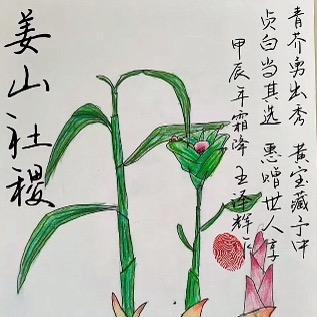 姜山社稷
青芥勇出秀 黄宝藏于中
贞白当其选 惠赠世人享
甲辰年霜降 王泽辉